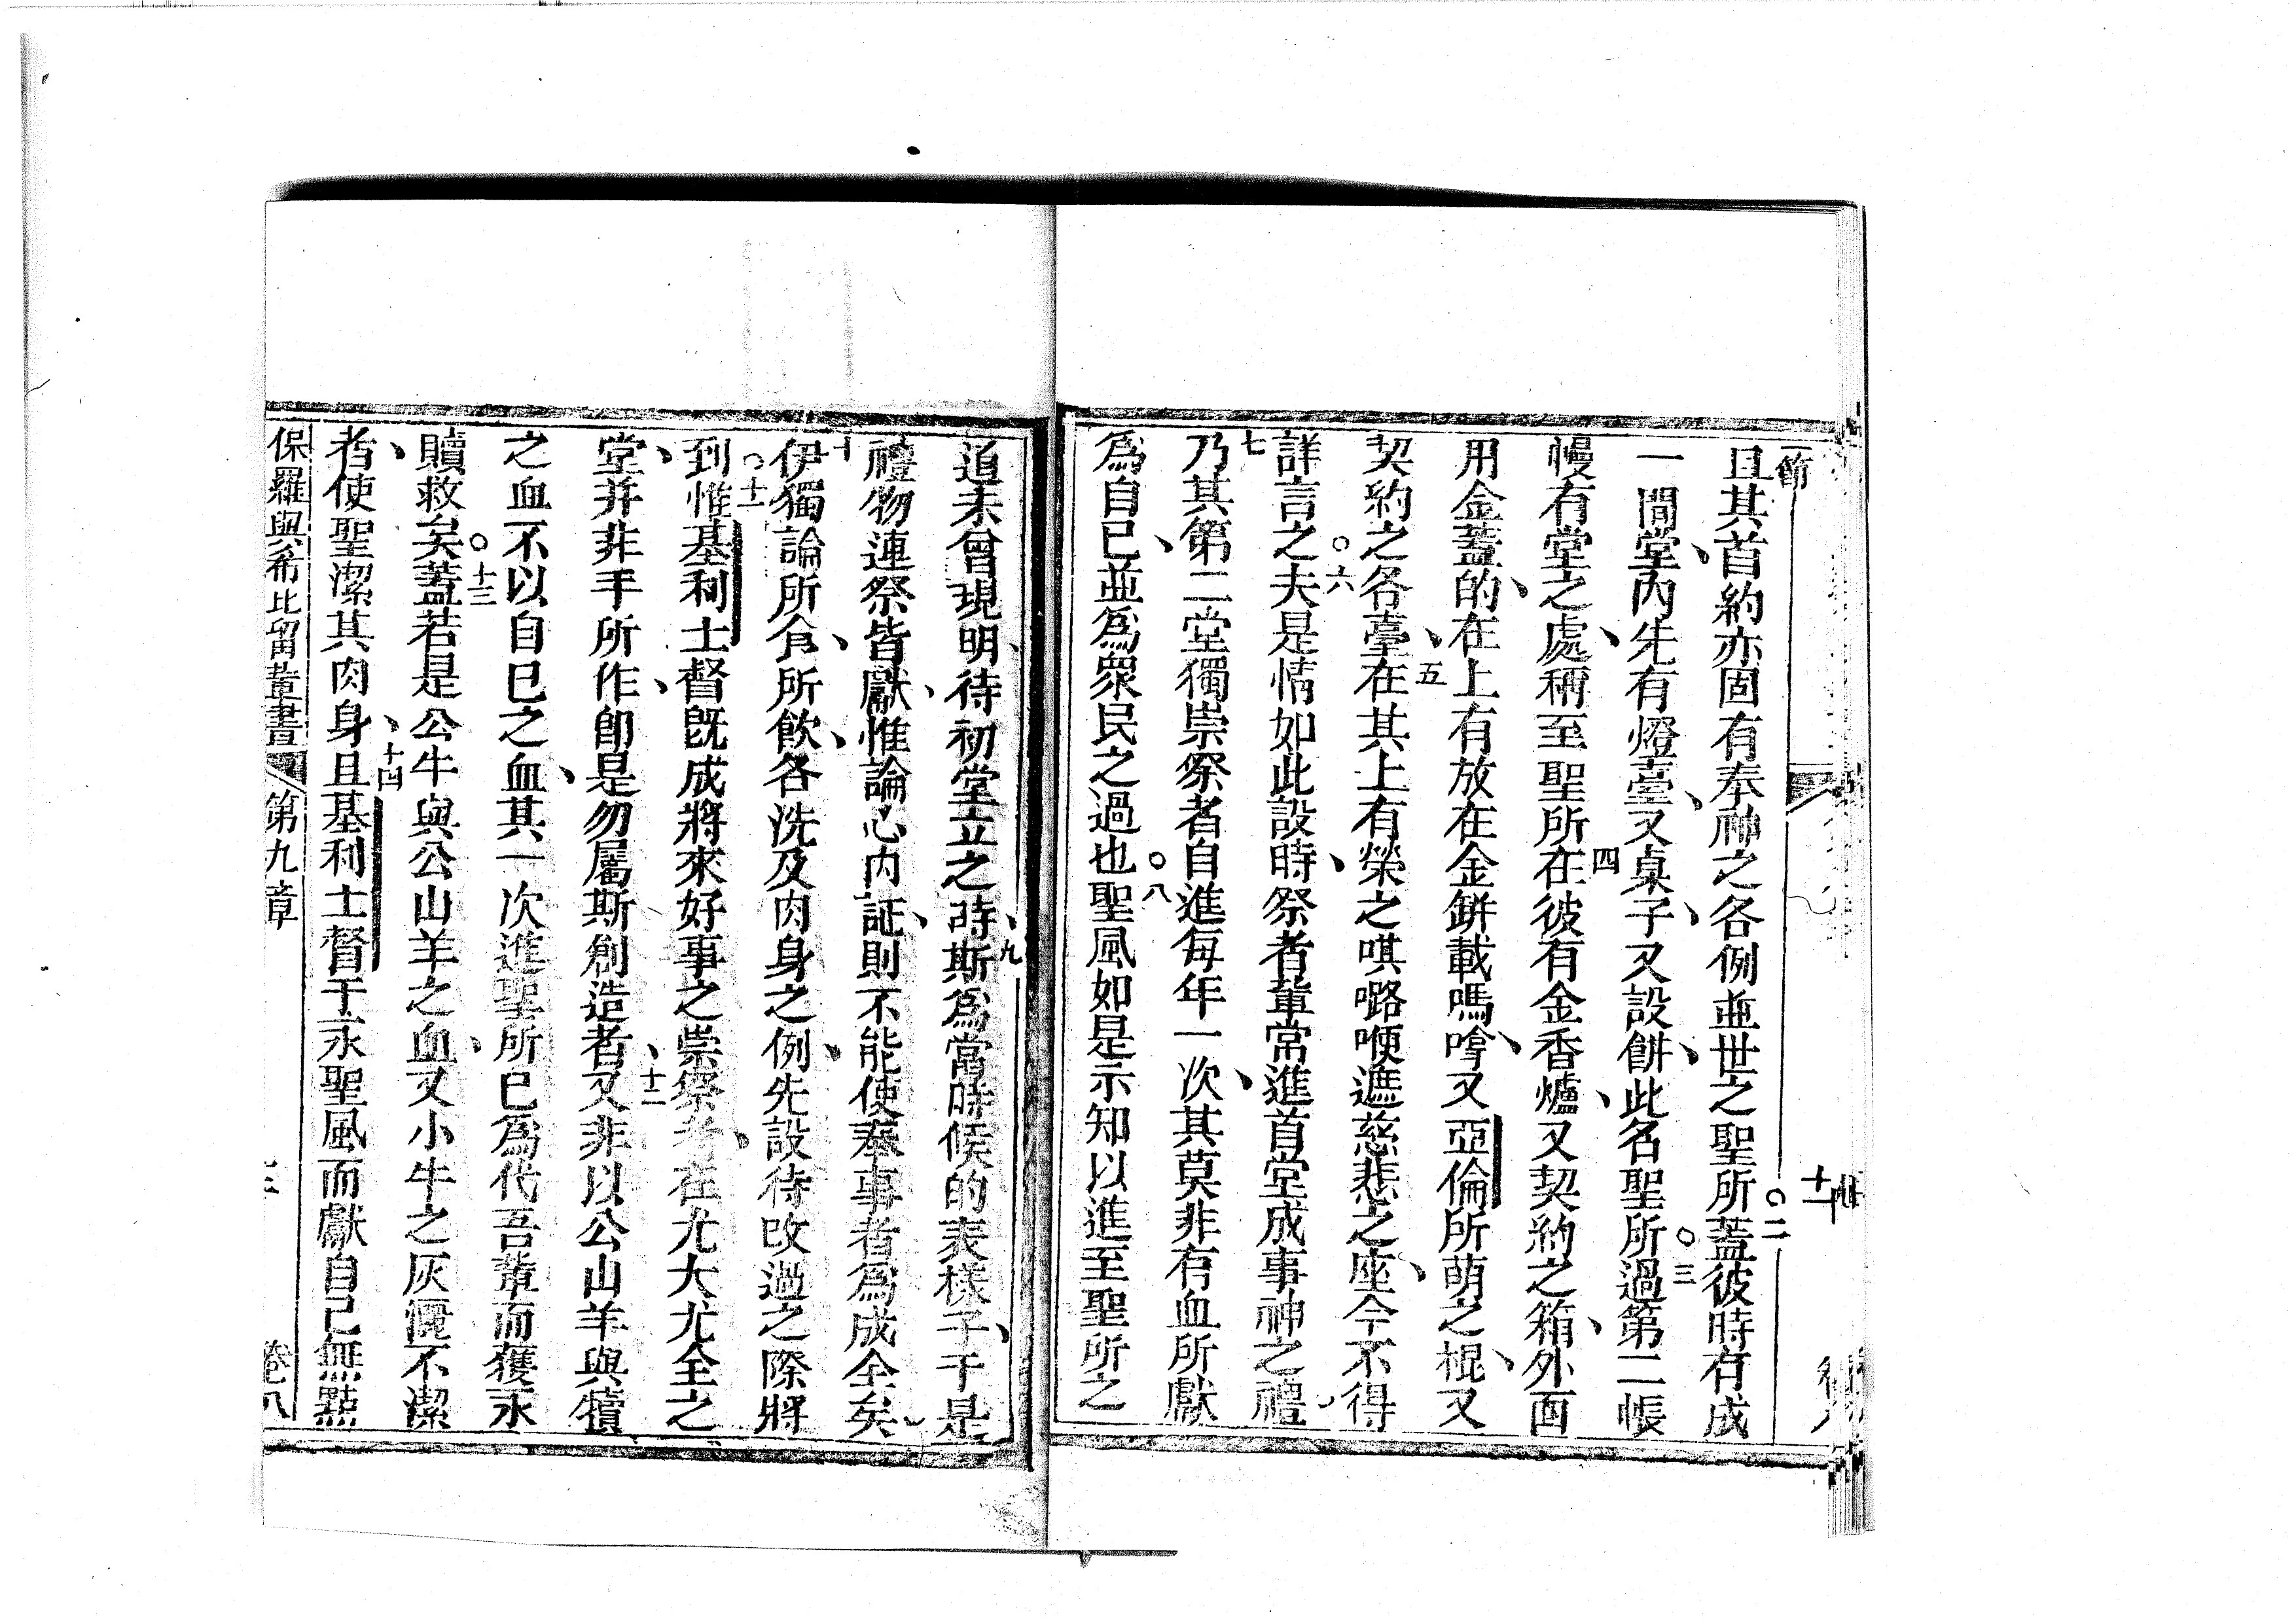 一節
且其首約亦固有奉神之各例並世之聖所○二蓋彼時有成
一間堂、內先有燈臺、又桌子、又設餅、此名聖所○三過第二帳
幔有堂之處、稱至聖所四在彼有金香爐、又契約之箱、外面
用金蓋的、在上有放在金缾載嗎嗱、又亞倫所萌之棍、又
契約之各臺、五在其上有榮之唭嚕㖠遮慈悲之座、今不得
詳言之○六夫是情如此設時、祭者輩常進首堂成事神之禮
七乃其第二堂獨崇祭者自進每年一次、其莫非有血所獻
為自己、並為眾民之過也○八聖風如是示知以進至聖所之
道未曾現明、待初堂立之時、九斯為當時候的表樣子、于是
禮物連祭皆獻、惟論心內証、則不能使奉事者為成全矣
十伊獨論所食、所飲、各洗及肉身之例、先設待改過之際將
到○十一惟基利士督既成將來好事之崇祭者、在尤大尤全之
堂、并非手所作、卽是勿屬斯創造者、十二又非以公山羊與犢
之血不以自己之血、其一次進聖所已為代吾輩而獲永
贖救矣○十三蓋若是公牛與公山羊之血、又小牛之灰灑不潔
者、使聖潔其肉身、十四且基利士督于永聖風而獻自己無點
保羅與希比留輩書 第九章 卷八